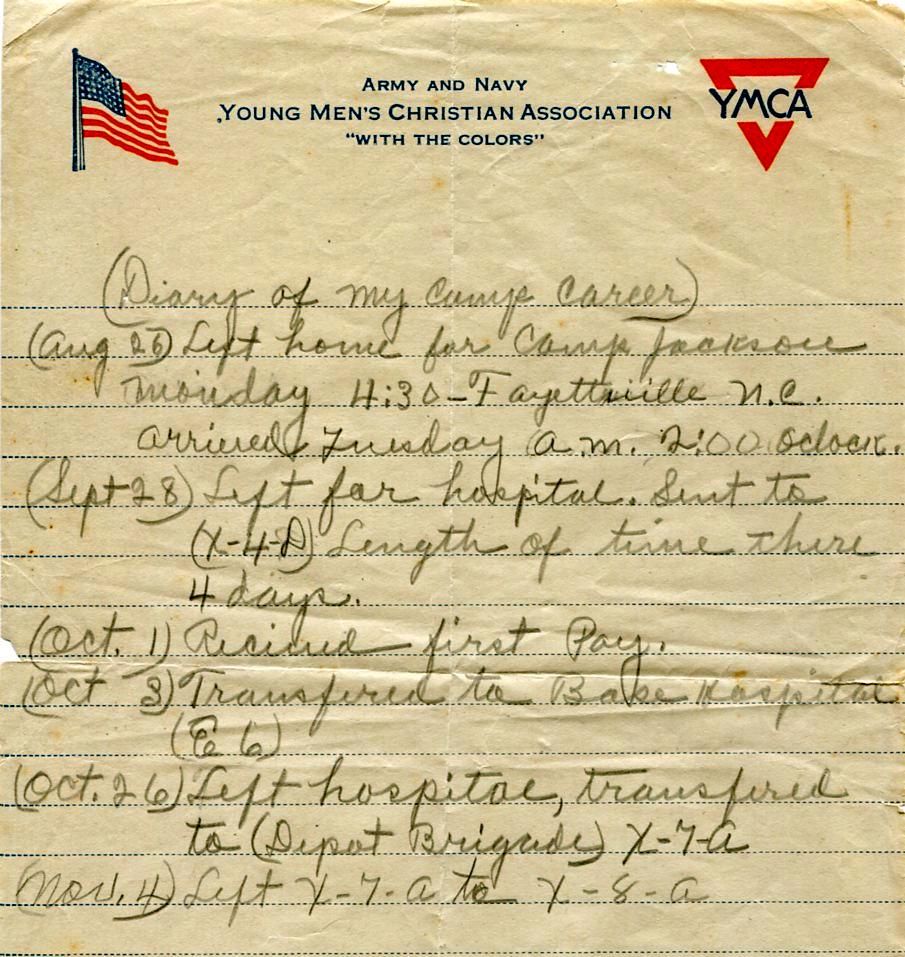 ARMY AND NAVY
YOUNG MEN'S CHRISTIAN ASSOCIATION
"WITH THE COLORS"
YMCA
(Diary of my Camp Career)
(Aug 26) Left home for Camp Jackson
Monday 4:30 - Fayettville N.C.
arrived Tuesday a.m. 2:00 Oclock.
(Sept 28) Left for hospital. Sent to
(X-4-D) Length of time there
4 days.
(Oct. 1) Recieved first Pay.
(Oct 3) Transfered to Base Hospital
(E 6)
(Oct. 26) Left hospital, transfered
to (Depot Brigade) X-7-A
(Nov. 4) Left X-7-A to X-8-A